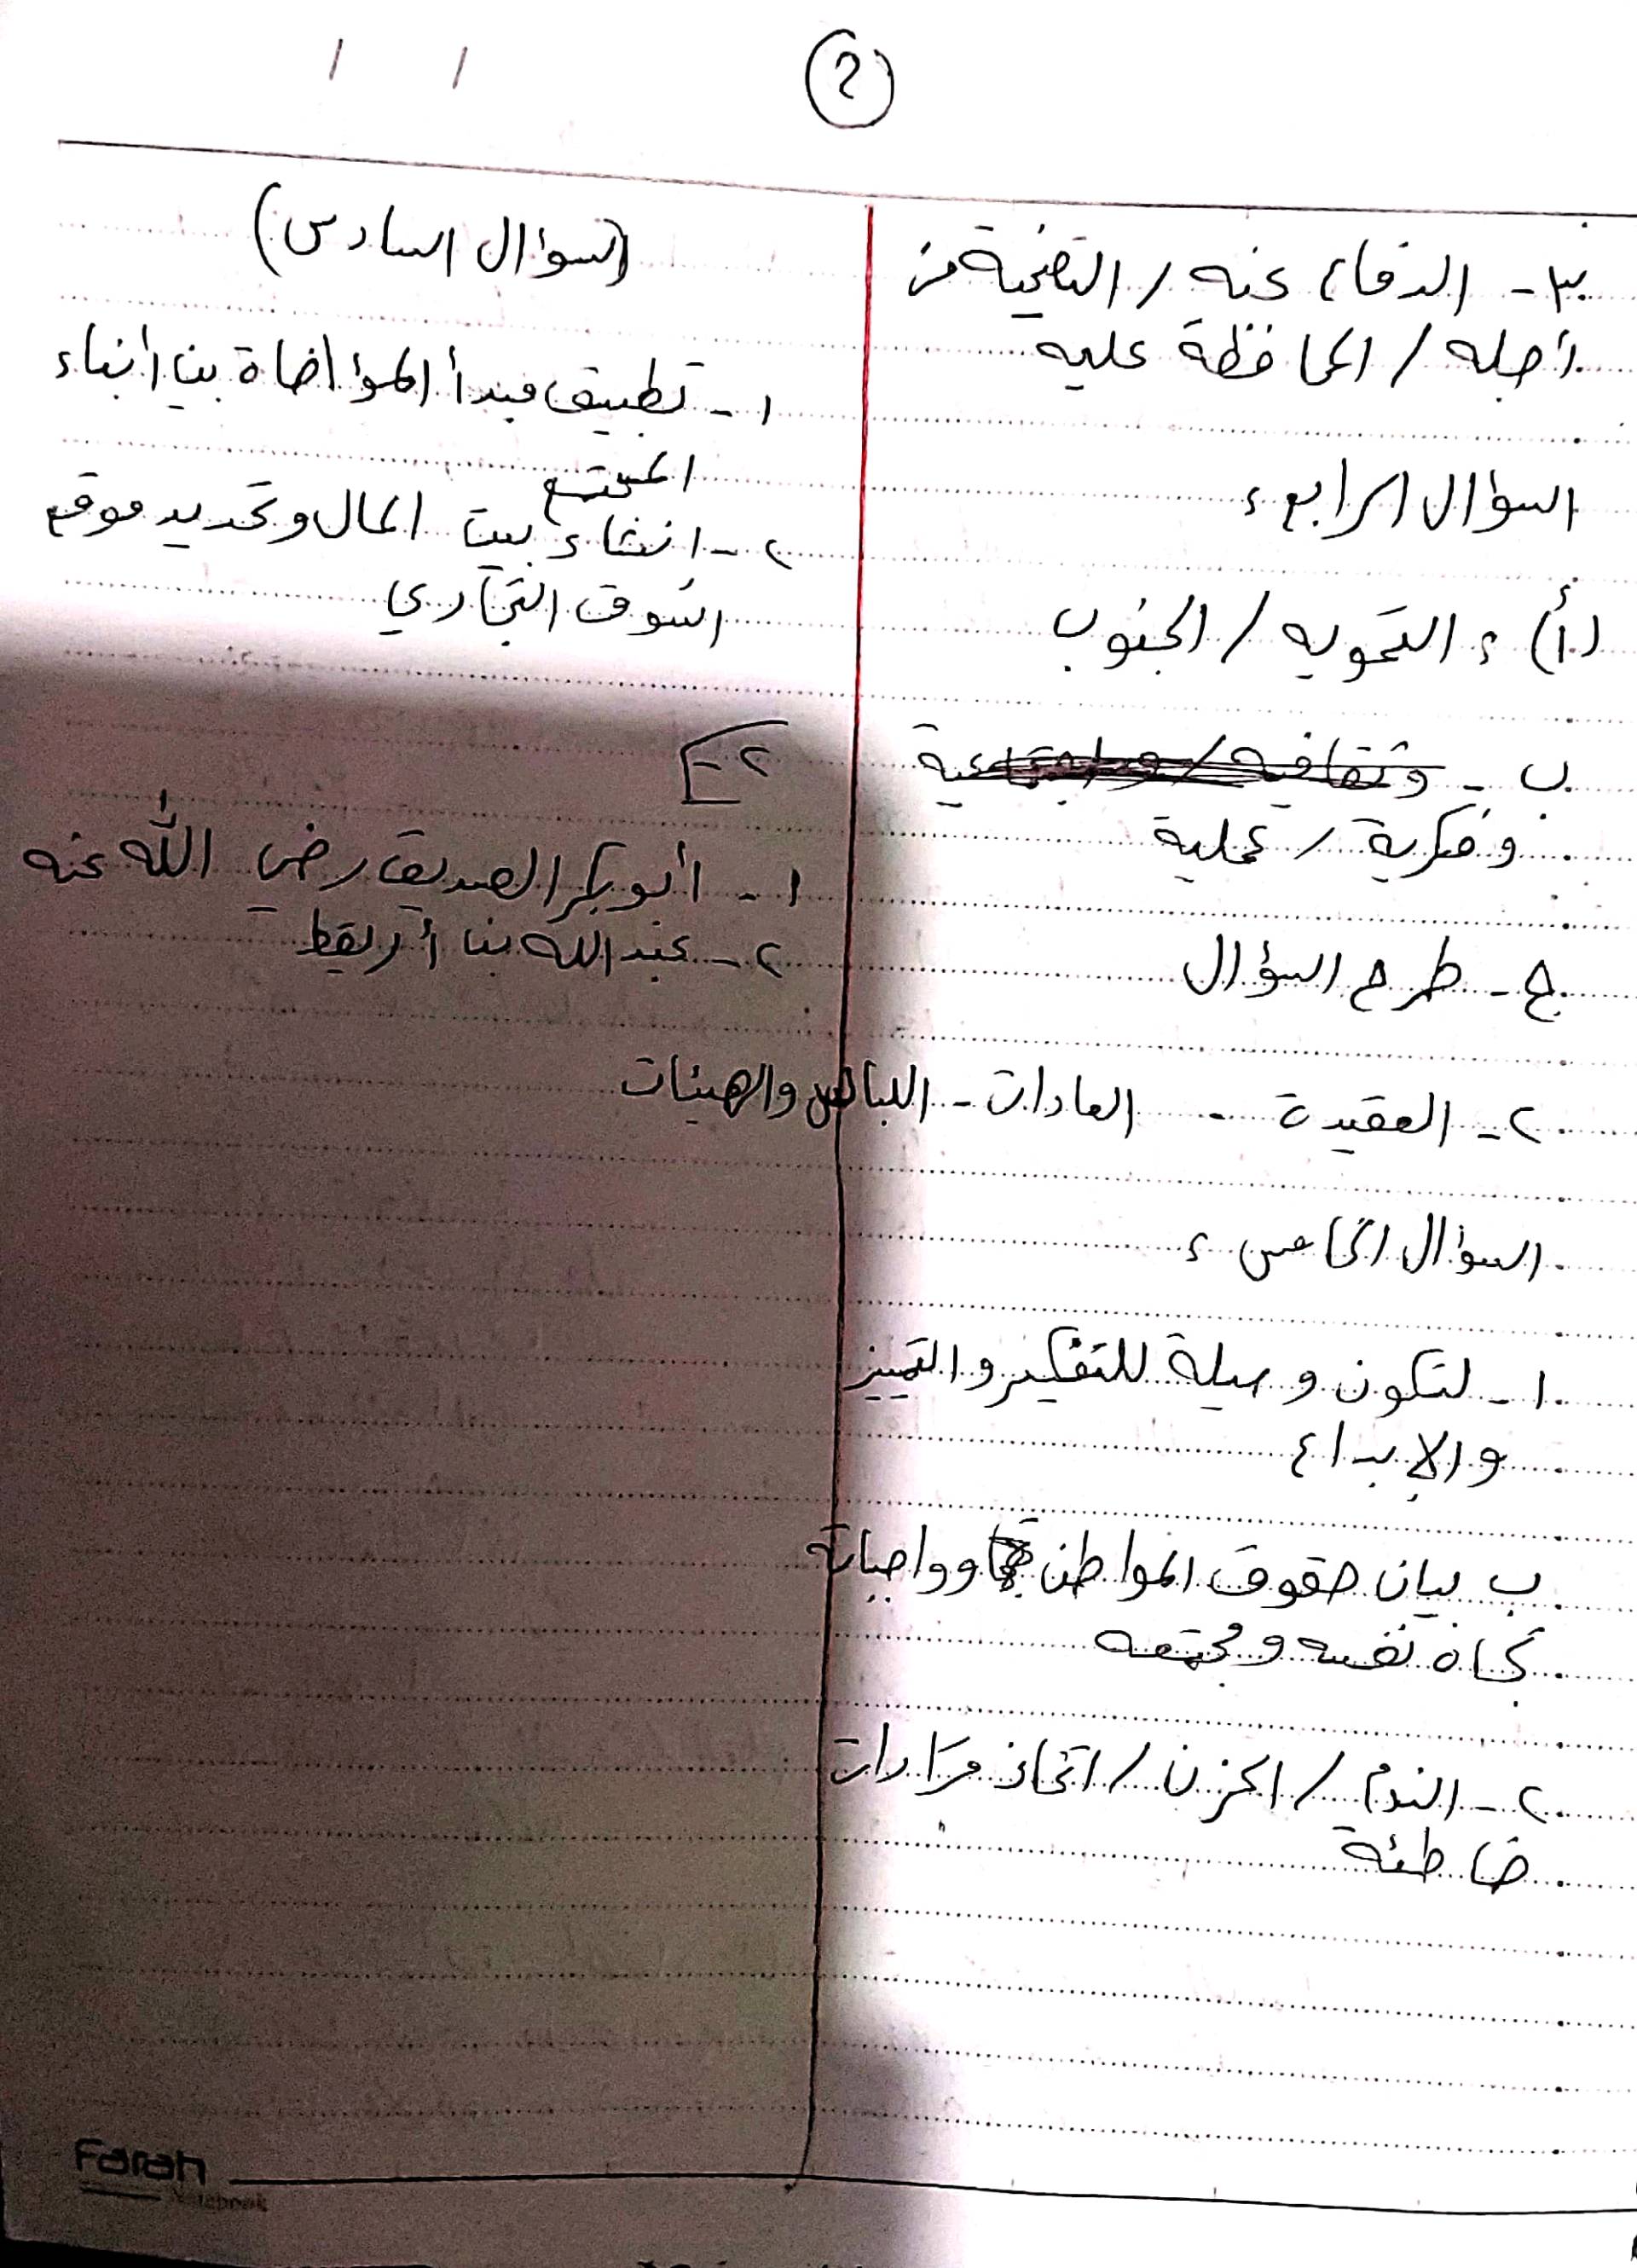 ٢
/ /
٣- الدفاع عنه / التضحية من
أجله / المحافظة عليه
السؤال الرابع :
(أ) : التمويه / الجنوب
ب -
وفكرية / عملية
ج - طرح السؤال
٢- العقيدة - العادات - اللباس والهيئات
السؤال الخامس :
١- لتكون وسيلة للتفكير والتمييز
والإبداع
ب بيان حقوق المواطن وواجباته
تجاه نفسه ومجتمعه
٢- الندم / الحزن / اتخاذ قرارات
خاطئة
(السؤال السادس)
١- تطبيق مبدأ المؤاخاة بين أبناء
المجتمع
٢- انشاء بيت المال وتحديد موقع
السوق التجاري
٢-
١- أبو بكر الصديق رضي الله عنه
٢- عبدالله بن أريقط
Farah
Notebook